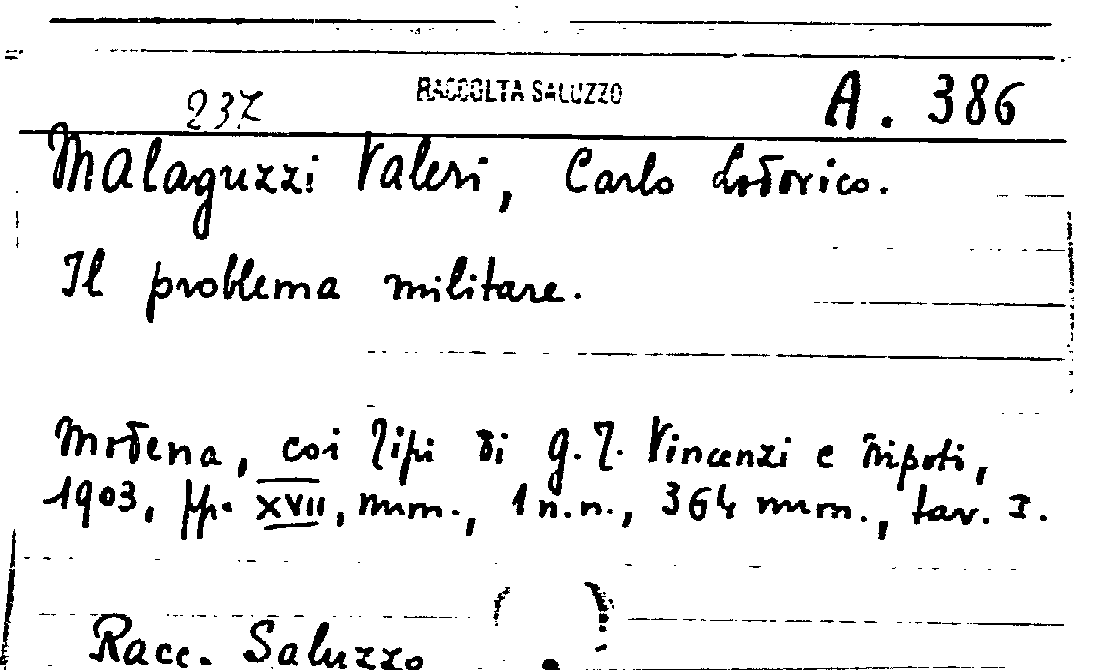 237 RACCOLTA SALUZZO A. 386
Malaguzzi Valeri, Carlo Lodovico.
Il problema militare.
Modena, coi Tipi di G. T. Vincenzi e Nipoti,
1903, pp. XVII, num., 1 n.n., 364 num., tav. I.
Racc. Saluzzo